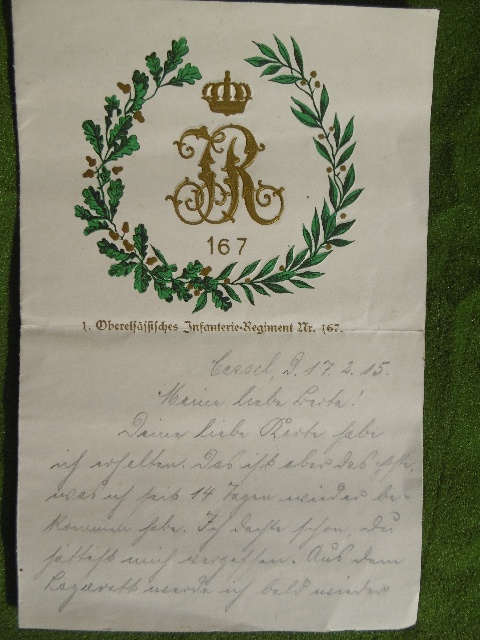 JR
167
1. Oberelsässisches Infanterie-Regiment Nr. 167.
Cassel, d. 17. 2. 15.
Meine liebe Berta!
Deine liebe Karte habe
ich erhalten. Das ist aber das erste,
was ich seit 14 Tagen wieder be-
kommen habe. Ich dachte schon, du
hättest mich vergessen. Aus dem
Lazarett werde ich bald wieder